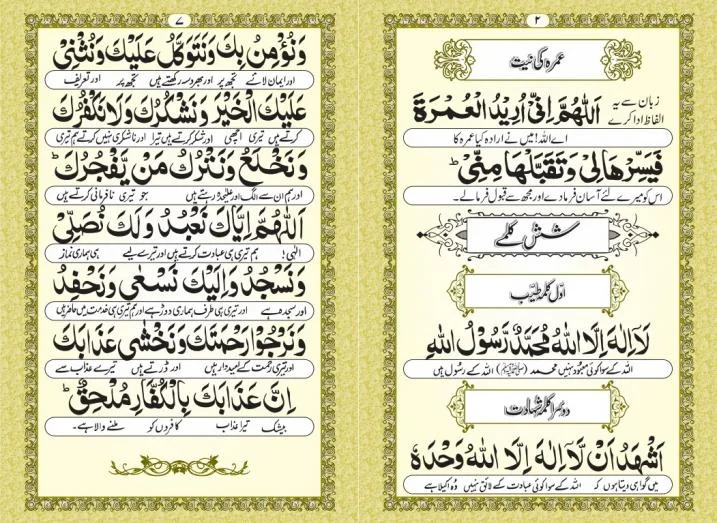 ۲
عمرہ کی نیت
زبان سے یہ الفاظ ادا کرے
اَللّٰهُمَّ اِنِّیْ اُرِیْدُ الْعُمْرَةَ
اے اللہ! میں نے ارادہ کیا عمرہ کا
فَیَسِّرْهَا لِیْ وَتَقَبَّلْهَا مِنِّیْ ؕ
اس کو میرے لئے آسان فرما دے اور مجھ سے قبول فرما لے۔
شش کلمے
اوّل کلمہ طیّب
لَآ اِلٰهَ اِلَّا اللهُ مُحَمَّدٌ رَّسُوْلُ اللهِ
اللہ کے سوا کوئی معبود نہیں محمد (ﷺ) اللہ کے رسول ہیں
دوسرا کلمہ شہادت
اَشْهَدُ اَنْ لَّآ اِلٰهَ اِلَّا اللهُ وَحْدَهٗ
میں گواہی دیتا ہوں کہ اللہ کے سوا کوئی عبادت کے لائق نہیں وہ اکیلا ہے
۷
وَنُؤْمِنُ بِكَ وَنَتَوَكَّلُ عَلَیْكَ وَنُثْنِیْ
اور ایمان لاتے تجھ پر اور بھروسہ رکھتے ہیں تجھ پر اور تعریف
عَلَیْكَ الْخَیْرَ وَنَشْكُرُكَ وَلَا نَكْفُرُكَ
کرتے ہیں تیری اچھی اور شکر کرتے ہیں تیرا اور ناشکری نہیں کرتے ہم تیری
وَنَخْلَعُ وَنَتْرُكُ مَنْ یَّفْجُرُكَ ؕ
اور ہم ان سے الگ اور علیحدہ رہتے ہیں جو تیری نافرمانی کرتے ہیں
اَللّٰهُمَّ اِیَّاكَ نَعْبُدُ وَلَكَ نُصَلِّیْ
الٰہی! ہم تیری ہی عبادت کرتے ہیں اور تیرے لیے ہی ہماری نماز
وَنَسْجُدُ وَاِلَیْكَ نَسْعٰی وَنَحْفِدُ
اور سجدہ ہے اور تیری ہی طرف ہماری دوڑ ہے اور ہم تیری ہی خدمت میں حاضر ہیں
وَنَرْجُوْا رَحْمَتَكَ وَنَخْشٰی عَذَابَكَ
اور تیری رحمت کے امیدوار ہیں اور ڈرتے ہیں تیرے عذاب سے
اِنَّ عَذَابَكَ بِالْكُفَّارِ مُلْحِقٌ ؕ
بیشک تیرا عذاب کافروں کو ملنے والا ہے۔